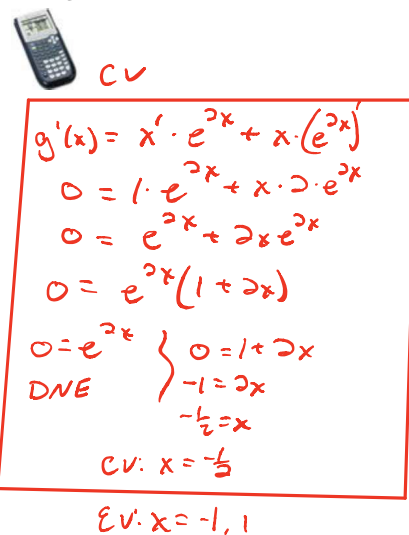 CV
g'(x) = x' · e^{2x} + x · (e^{2x})'
0 = 1 · e^{2x} + x · 2 · e^{2x}
0 = e^{2x} + 2xe^{2x}
0 = e^{2x}(1 + 2x)
0 = e^{2x} } 0 = 1 + 2x
DNE -1 = 2x
-1/2 = x
CV: x = -1/2
EV: x = -1, 1